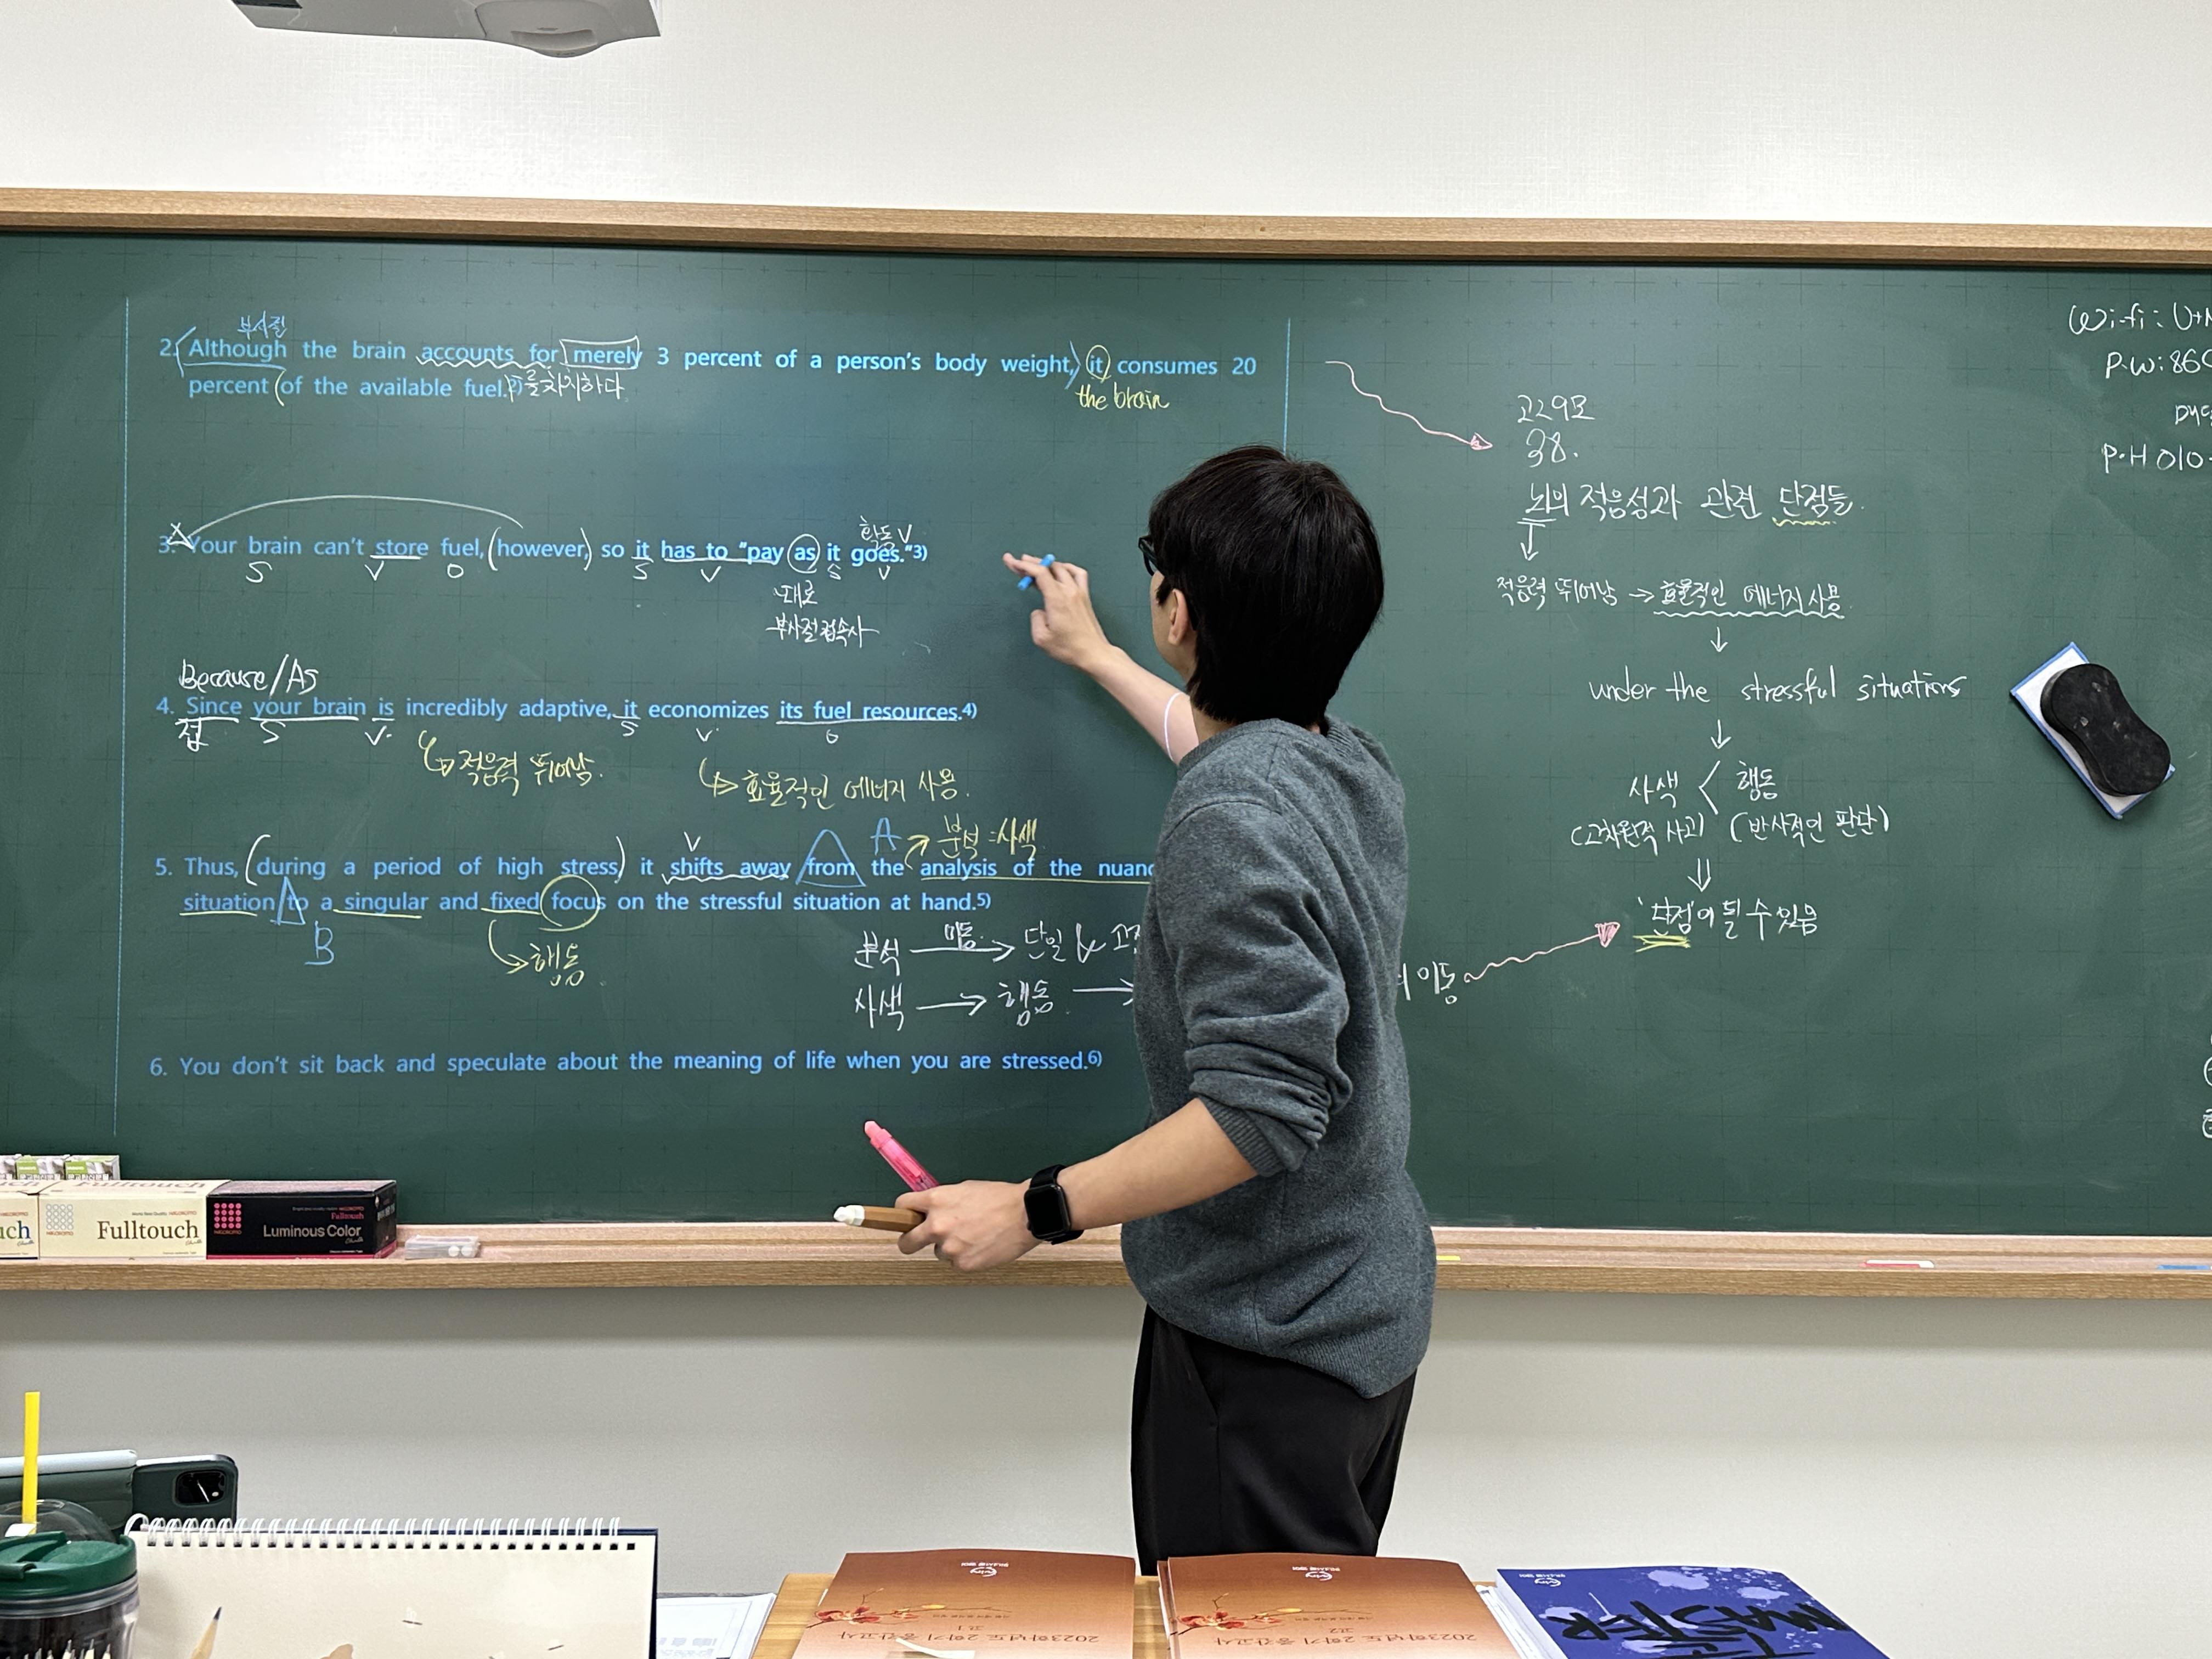 부사절
2. Although the brain accounts for merely 3 percent of a person's body weight, it consumes 20
percent of the available fuel.2) 를 차지하다
the brain
작동 V
3. Your brain can't store fuel, however, so it has to "pay as it goes."3)
S V O S V S V
대로
부사절 접속사
Because/As
4. Since your brain is incredibly adaptive, it economizes its fuel resources.4)
접 S V. S V. O
적응력 뛰어남.
효율적인 에너지 사용.
V A 분석=사색
5. Thus, during a period of high stress, it shifts away from the analysis of the
situation to a singular and fixed focus on the stressful situation at hand.5)
B
행동
분석 이동 단일 &
사색 → 행동 →
이동
6. You don't sit back and speculate about the meaning of life when you are stressed.6)
고2 9모
38.
뇌의 적응성과 관련 단점들.
적응력 뛰어남 → 효율적인 에너지 사용
↓
under the stressful situations
↓
사색 < 행동
(고차원적 사고) (반사적인 판단)
⇓
'단점'이 될 수 있음
Wi-fi: U+
P.W: 86
P.H 010-
Fulltouch
Fulltouch
Luminous Color
2023학년도 2학기 중간고사
고1
2023학년도 2학기 중간고사
고2
MASTER